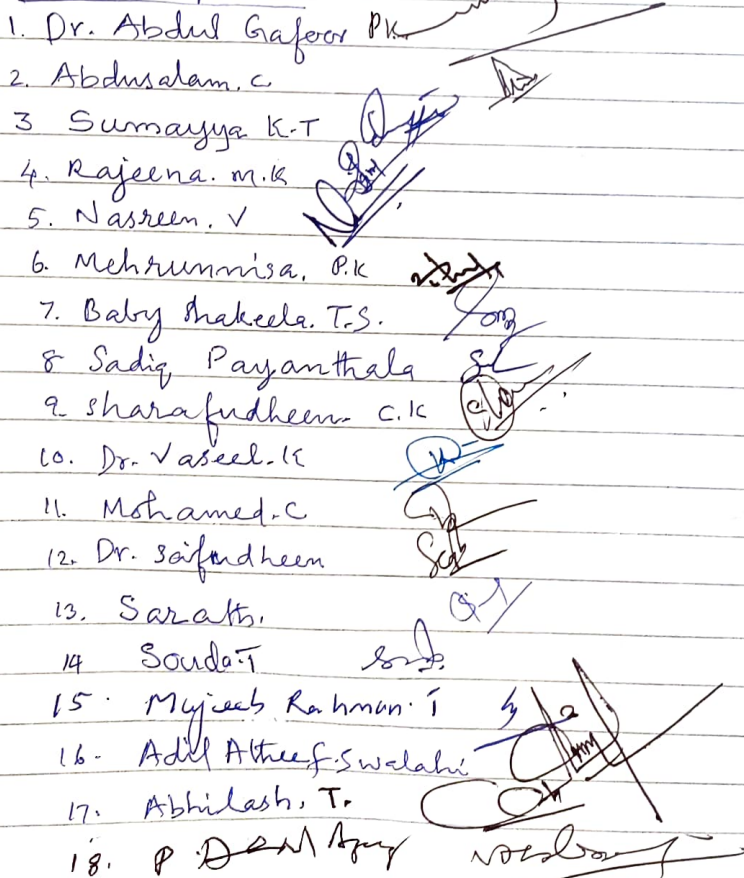 1. Dr. Abdul Gafoor P.K
2. Abdusalam. C
3 Sumayya K.T
4. Rajeena. M.K
5. Nasreen. V
6. Mehrunnisa. P.K
7. Baby Shakeela. T.S.
8 Sadiq Payanthala
9 Sharafudheen C.K
10. Dr. Vaseel. K
11. Mohamed. C
12. Dr. Saifudheen
13. Sarath.
14 Souda. T
15. Mujeeb Rahman. T
16. Adil Altheef. Swalahi
17. Abhilash. T.
18. P.